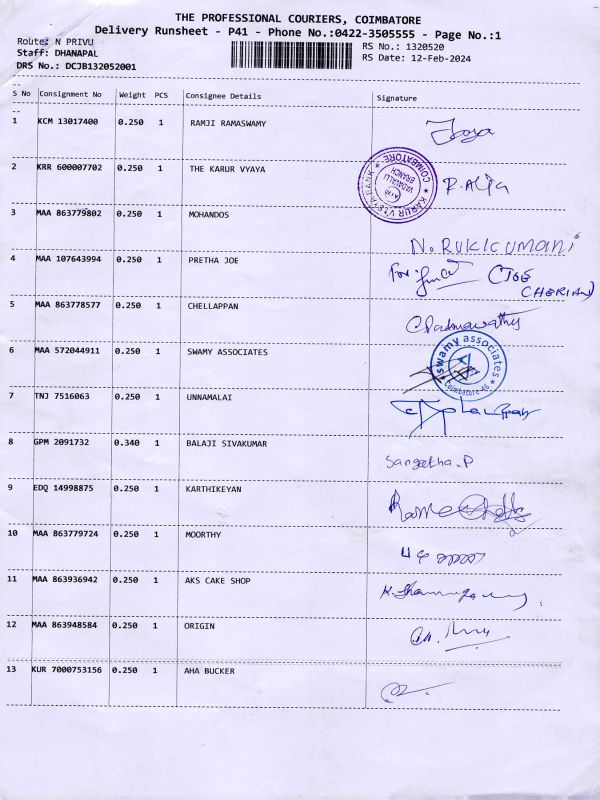 THE PROFESSIONAL COURIERS, COIMBATORE
Delivery Runsheet - P41 - Phone No.:0422-3505555 - Page No.:1
Route: N PRIVU
RS No.: 1320520
Staff: DHANAPAL
RS Date: 12-Feb-2024
DRS No.: DCJB132052001
S No Consignment No Weight PCS Consignee Details Signature
1 KCM 13017400 0.250 1 RAMJI RAMASWAMY
2 KRR 600007702 0.250 1 THE KARUR VYAYA
KARUR VYSYA BANK COIMBATORE
VADAVALLI BRANCH
3 MAA 863779802 0.250 1 MOHANDOS N. RUKKUMANI
4 MAA 107643994 0.250 1 PRETHA JOE For: (JOE
CHERIAN)
5 MAA 863778577 0.250 1 CHELLAPPAN
6 MAA 572044911 0.250 1 SWAMY ASSOCIATES swamy associates
7 TNJ 7516063 0.250 1 UNNAMALAI
8 GPM 2091732 0.340 1 BALAJI SIVAKUMAR Sangeetha.P
9 EDQ 14998875 0.250 1 KARTHIKEYAN
10 MAA 863779724 0.250 1 MOORTHY
11 MAA 863936942 0.250 1 AKS CAKE SHOP
12 MAA 863948584 0.250 1 ORIGIN
13 KUR 7000753156 0.250 1 AHA BUCKER